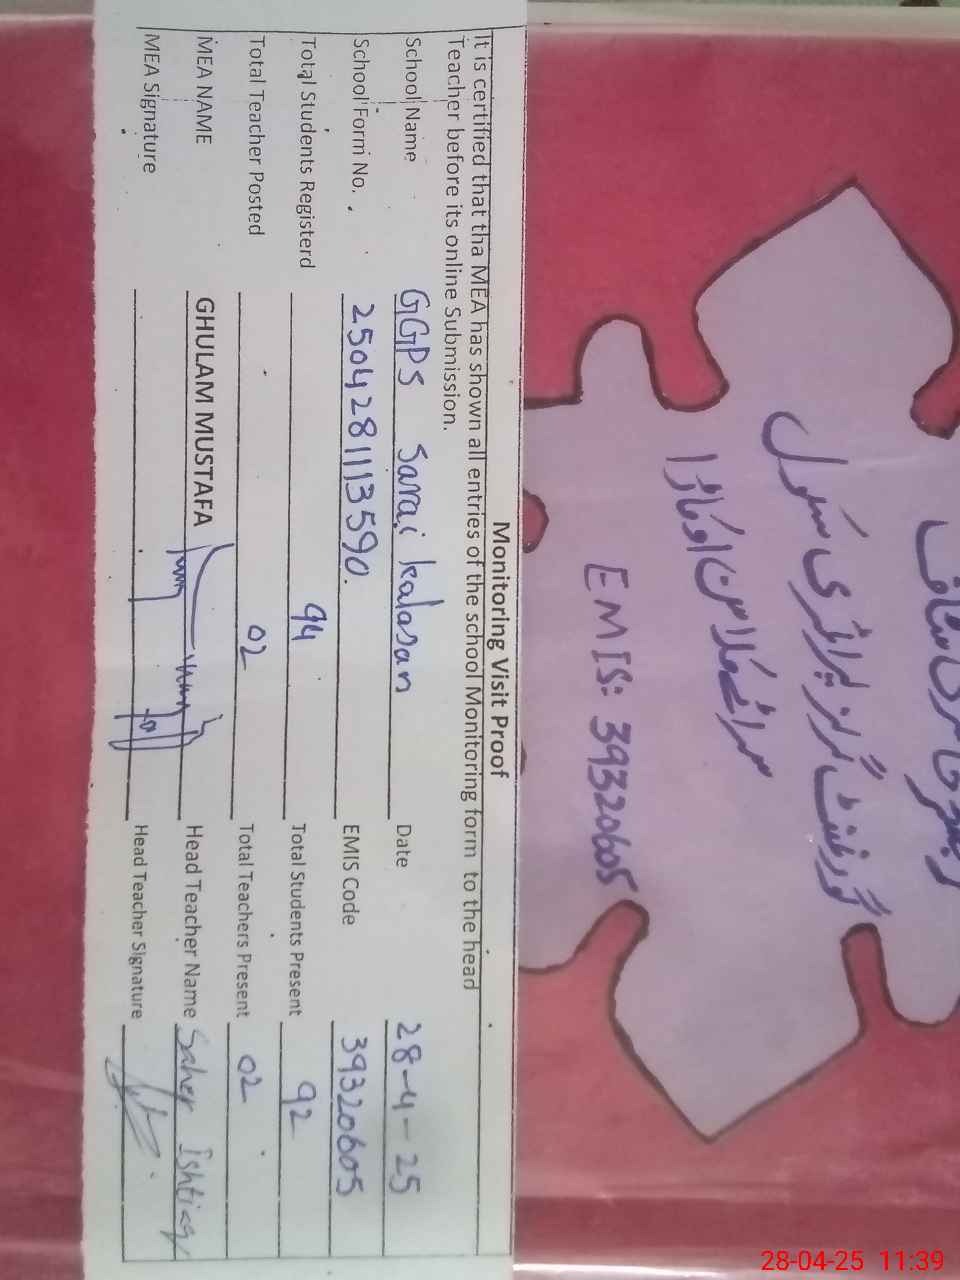 رجسٹر حاضری سٹاف
گورنمنٹ گرلز پرائمری سکول
سرائے کلاسن اوکاڑا
EMIS: 39320605
Monitoring Visit Proof
It is certified that tha MEA has shown all entries of the school Monitoring form to the head
Teacher before its online Submission.
School Name GGPS Sarai kalasan Date 28-4-25
School Form No. 2504281113590. EMIS Code 39320605
Total Students Registerd 94 Total Students Present 92
Total Teacher Posted 02 Total Teachers Present 02
MEA NAME GHULAM MUSTAFA Head Teacher Name Saher Ishtiaq
MEA Signature Head Teacher Signature
28-04-25 11:39